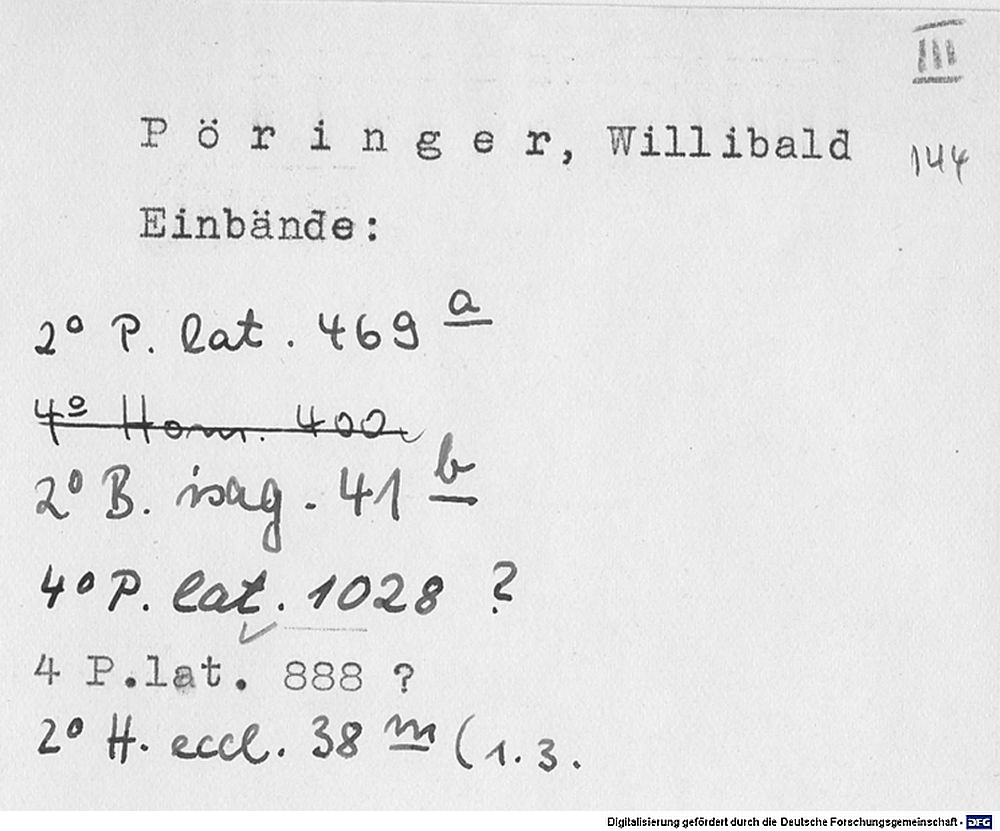 III
Pöringer, Willibald 144
Einbände:
2° P. lat. 469 a
4° Hom. 400
2° B. isag. 41 b
4° P. lat. 1028 ?
4 P.lat. 888 ?
2° H. eccl. 38 m (1.3.
Digitalisierung gefördert durch die Deutsche Forschungsgemeinschaft - DFG